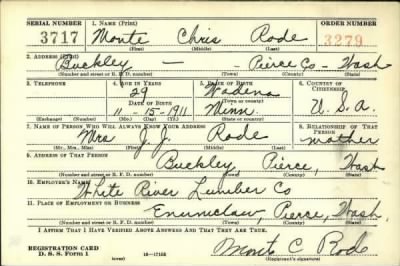 SERIAL NUMBER 1. NAME (Print) ORDER NUMBER
3717 Monte Chris Rode 3279
(First) (Middle) (Last)
2. ADDRESS (Print)
Buckley — Pierce Co - Wash
(Number and street or R. F. D. number) (Town) (County) (State)
3. TELEPHONE 4. AGE IN YEARS 5. PLACE OF BIRTH 6. COUNTRY OF CITIZENSHIP
29 Wadena
(Town or county)
DATE OF BIRTH
11-15-1911 Minn. U.S.A.
(Exchange) (Number) (Mo.) (Day) (Yr.) (State or country)
7. NAME OF PERSON WHO WILL ALWAYS KNOW YOUR ADDRESS 8. RELATIONSHIP OF THAT PERSON
Mrs J. J. Rode mother
(Mr., Mrs., Miss) (First) (Middle) (Last)
9. ADDRESS OF THAT PERSON
Buckley, Pierce, Wash
(Number and street or R. F. D. number) (Town) (County) (State)
10. EMPLOYER'S NAME
White River Lumber Co
11. PLACE OF EMPLOYMENT OR BUSINESS
Enumclaw, Pierce, Wash.
(Number and street or R. F. D. number) (Town) (County) (State)
I AFFIRM THAT I HAVE VERIFIED ABOVE ANSWERS AND THAT THEY ARE TRUE.
REGISTRATION CARD
D. S. S. Form 1 (over) 16—17105 Monte C Rode
(Registrant's signature)